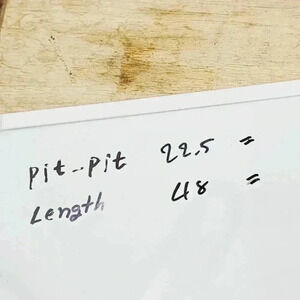 pit--pit 22.5 =
Length 48 =